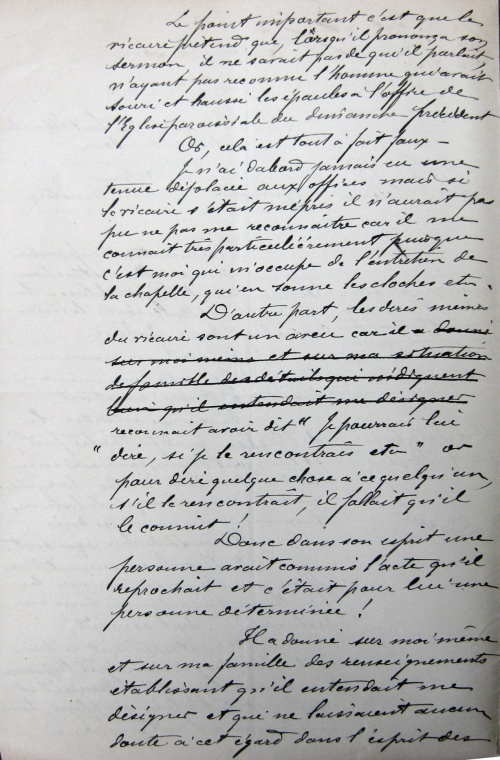 Le point important c'est que le
vicaire prétend que, lorsqu'il prononça son
sermon, il ne savait pas de qui il parlait,
n'ayant pas reconnu l'homme qui avait
souri et haussé les épaules à l'office de
l'Eglise paroissiale du dimanche précédent
Or, cela est tout à fait faux -
Je n'ai d'abord jamais eu une
tenue déplacée aux offices mais si
le vicaire s'était mépris il n'aurait pas
pu ne pas me reconnaître car il me
connait très particulièrement puisque
c'est moi qui m'occupe de l'entretien de
la chapelle, qui en sonne les cloches etc.
D'autre part, les dires mêmes
du vicaire sont un aveu car il a donné
sur moi même et sur ma situation
de famille des détails qui indiquent
bien qu'il entendait me désigner
reconnait avoir dit " Je pourrais lui
" dire, si je le rencontrais etc " or
pour dire quelque chose à ce quelqu'un,
s'il le rencontrait, il fallait qu'il
le connut !
Donc dans son esprit une
personne avait commis l'acte qu'il
reprochait et c'était pour lui une
personne déterminée !
Il a donné sur moi même
et sur ma famille des renseignements
établissant qu'il entendait me
désigner et qui ne laissaient aucun
doute à cet égard dans l'esprit des